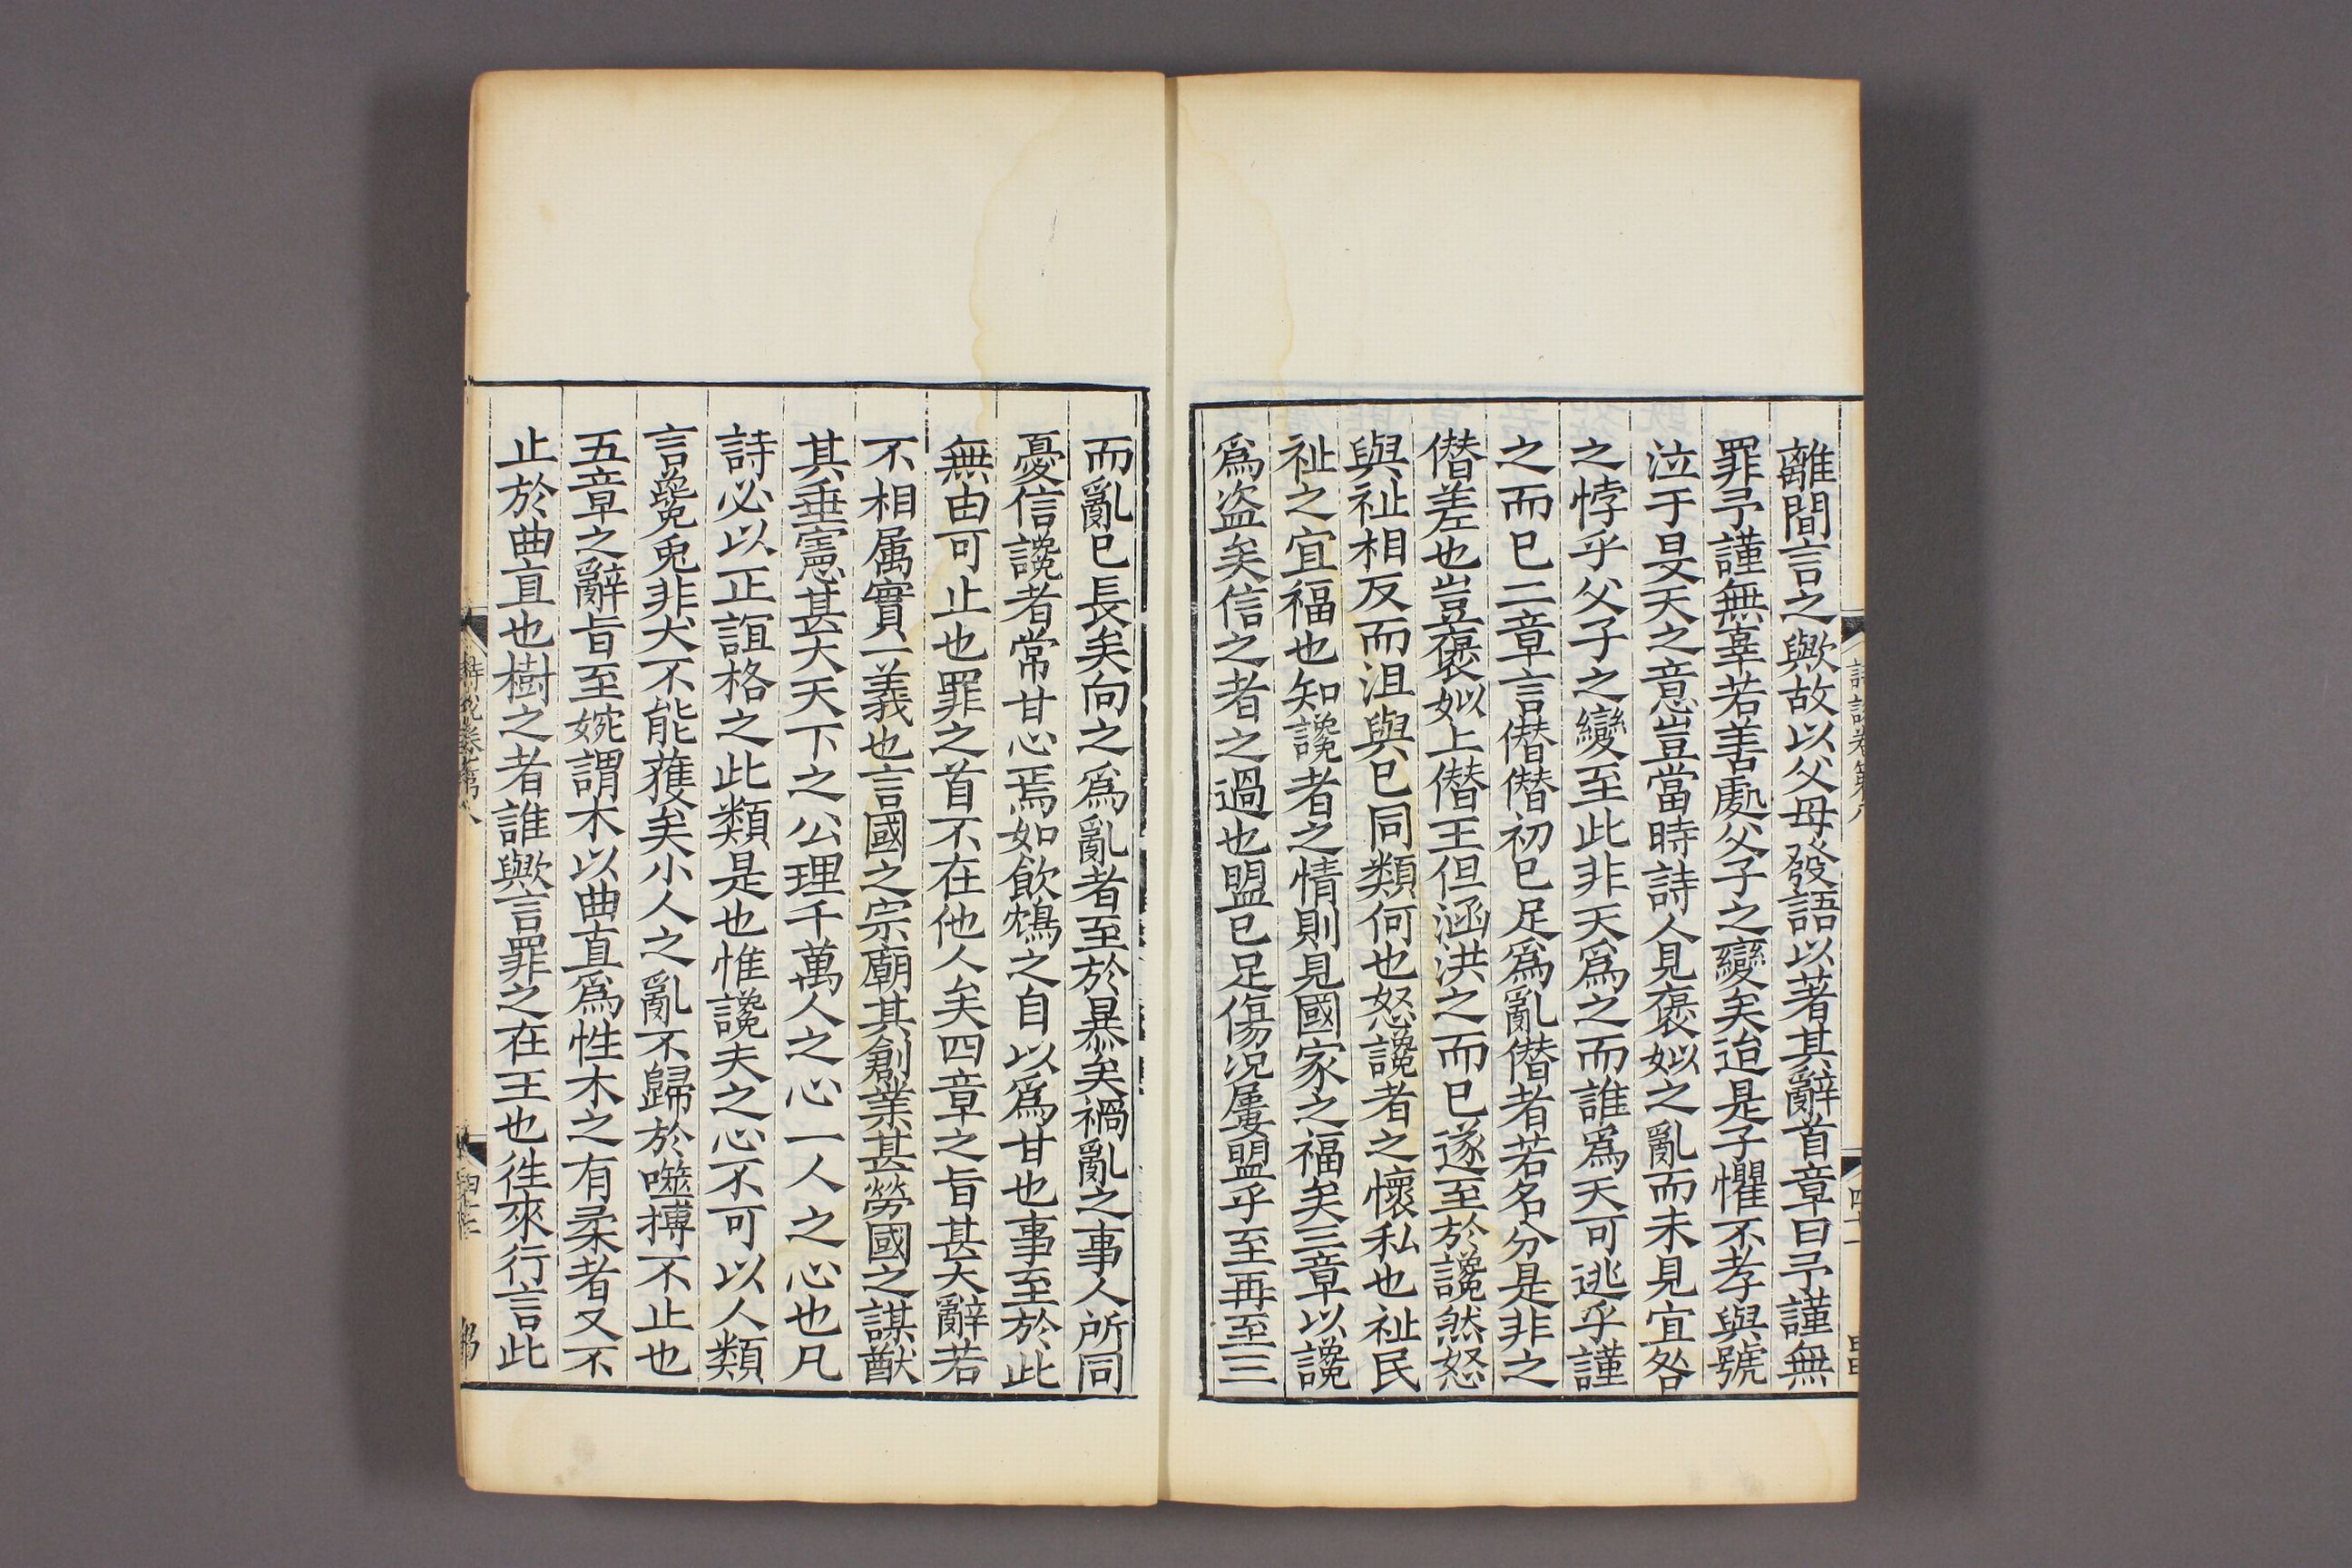 離間言之歟故以父母發語以著其辭首章曰予謹無
罪予謹無辜若善處父子之變矣迨是子懼不孝與號
泣于旻天之意豈當時詩人見褒姒之亂而未見宜咎
之悖乎父子之變至此非天爲之而誰爲天可逃乎謹
之而已二章言僣僣初已足爲亂僣者若名分是非之
僣差也豈褒姒上僣王但涵洪之而已遂至於讒然怒
與祉相反而沮與已同類何也怒讒者之懷私也祉民
祉之宜福也知讒者之情則見國家之福矣三章以讒
爲盗矣信之者之過也盟已足傷况屢盟乎至再至三
而亂已長矣向之爲亂者至於暴矣禍亂之事人所同
憂信讒者常甘心焉如飲鴆之自以爲甘也事至於此
無由可止也罪之首不在他人矣四章之旨甚大辭若
不相属實一義也言國之宗廟其創業甚勞國之謀猷
其垂憲甚大天下之公理千萬人之心一人之心也凡
詩必以正誼格之此類是也惟讒夫之心不可以人類
言毚兎非犬不能獲矣小人之亂不歸於噬搏不止也
五章之辭旨至婉謂木以曲直爲性木之有柔者又不
止於曲直也樹之者誰歟言罪之在王也徃來行言此
詩説卷第八